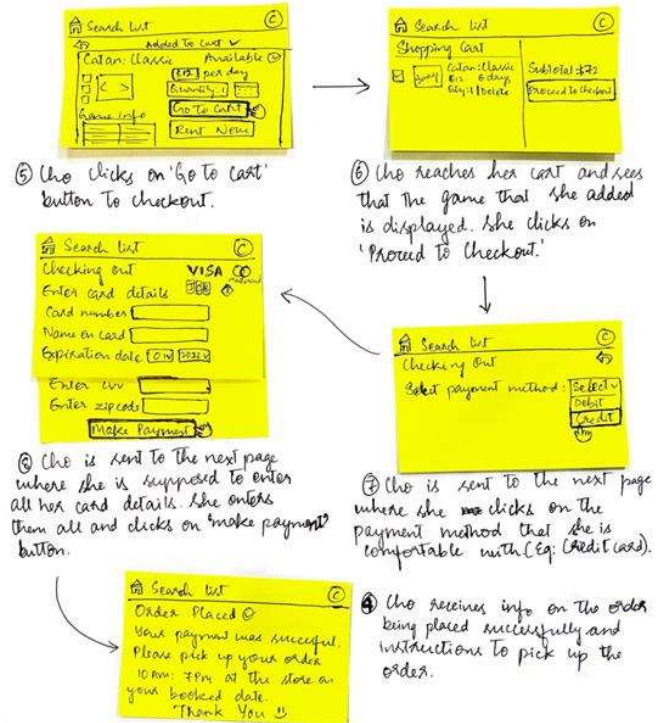 Search list C
Added to cart ✓
Catan: Classic Available
$12 per day
Quantity: 1
Go to Cart
Game info
Rent Now
⑤ Cho clicks on 'Go to cart'
button to checkout.
Search list C
Shopping Cart
Catan: Classic
$12 6 days
Qty: 1 | Delete
Subtotal: $72
Proceed to Checkout
⑥ Cho reaches her cart and sees
that the game that she added
is displayed. She clicks on
'Proceed to Checkout.'
Search list C
Checking out
Select payment method: Select
Debit
Credit
⑦ Cho is sent to the next page
where she clicks on the
payment method that she is
comfortable with (Eg: Credit card).
Search list C
Checking out VISA
Enter card details
Card number
Name on card
Expiration date
Enter CVV
Enter zipcode
Make Payment
⑧ Cho is sent to the next page
where she is supposed to enter
all her card details. She enters
them all and clicks on 'make payment'
button.
Search list C
Order Placed
Your payment was succesful.
Please pick up your order
10 AM: 7 PM at the store on
your booked date.
Thank You
Cho receives info on the order
being placed successfully and
instructions to pick up the
order.